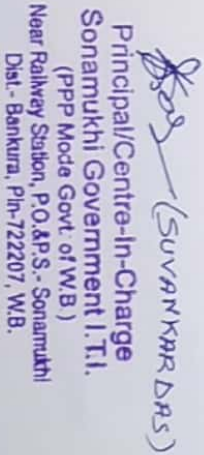 (SUVANKAR DAS)
Principal/Centre-In-Charge
Sonamukhi Government I.T.I.
(PPP Mode Govt. of W.B.)
Near Railway Station, P.O.&P.S.- Sonamukhi
Dist.- Bankura, Pin-722207, W.B.